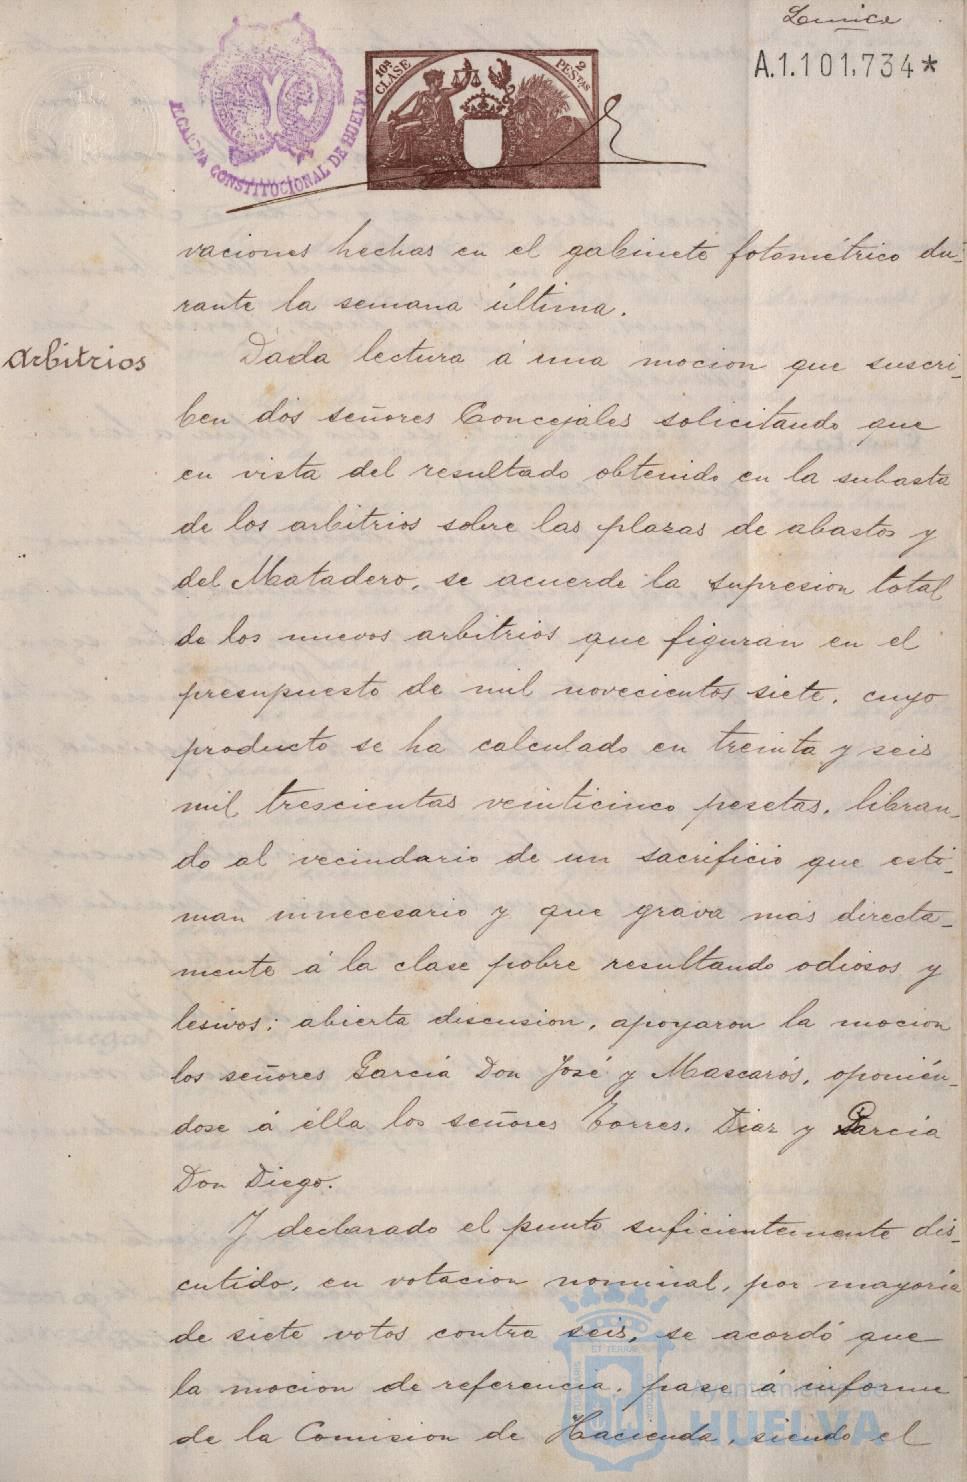 A.1.101,734*
10ª CLASE
2 PESTAS
ALCALDIA CONSTITUCIONAL DE HUELVA
vaciones hechas en el gabinete fotométrico du-
rante la semana última.
Arbitrios
Dada lectura á una mocion que suscri-
ben dos señores Concejales solicitando que
en vista del resultado obtenido en la subasta
de los arbitrios sobre las plazas de abastos y
del Matadero, se acuerde la supresion total
de los nuevos arbitrios que figuran en el
presupuesto de mil novecientos siete, cuyo
producto se ha calculado en treinta y seis
mil trescientas veinticinco pesetas, libran-
do al vecindario de un sacrificio que esti-
man innecesario y que grava más directa-
mente á la clase pobre resultando odiosos y
lesivos; abierta discusion, apoyaron la mocion
los señores García Don José y Mascarós, oponién-
dose á élla los señores Torres, Diaz y García
Don Diego.
Y declarado el punto suficientemente dis-
cutido, en votacion nominal, por mayoría
de siete votos contra seis, se acordó que
la mocion de referencia, pase á informe
de la Comision de Hacienda, siendo el
Ayuntamiento de
HUELVA